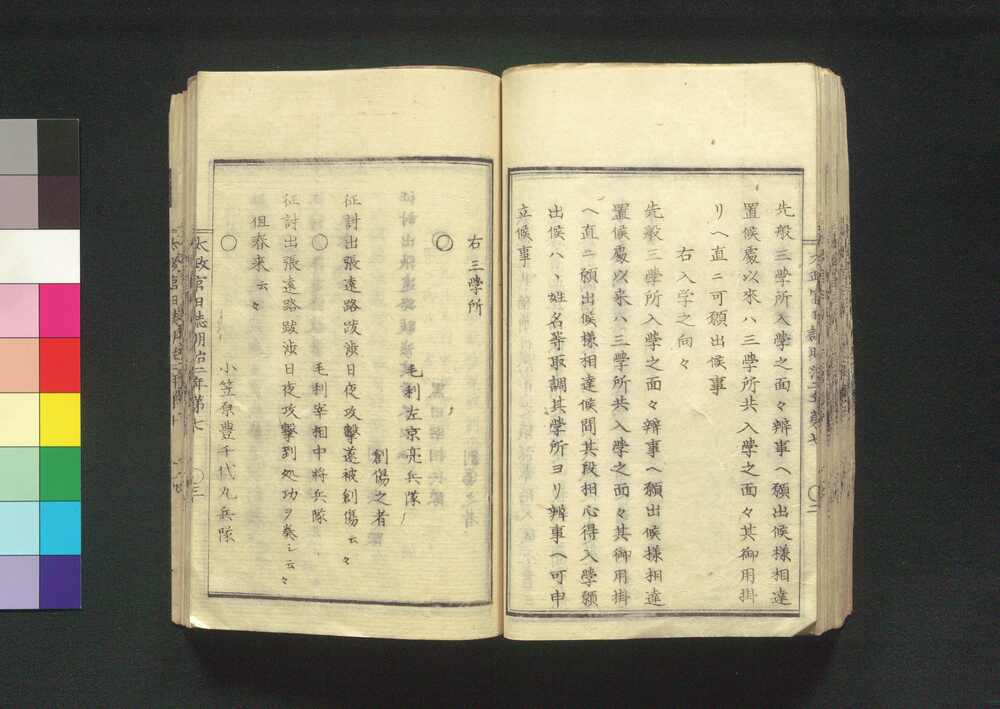 先般三學所入學之面々辨事ヘ願出候樣相達
置候處以來ハ三學所共入學之面々其御用掛
リヘ直ニ可願出候事
右入学之向々
先般三學所入學之面々辨事ヘ願出候樣相達
置候處以来ハ三學所共入學之面々其御用掛
ヘ直ニ願出候樣相達候間其段相心得入學願
出候ハヽ姓名等取調其學所ヨリ辨事ヘ可申
立候事
右三學所
◯
毛利左京亮兵隊
創傷之者
征討出張遠路跋渉日夜攻撃遂被創傷云々
◯ 毛利宰相中將兵隊
征討出張遠路跋渉日夜攻撃到処功ヲ奏シ云々
但春来云々
◯
小笠原豊千代丸兵隊
太政官日誌明治二年第七
◯三
太政官日誌明治二年第七
◯二